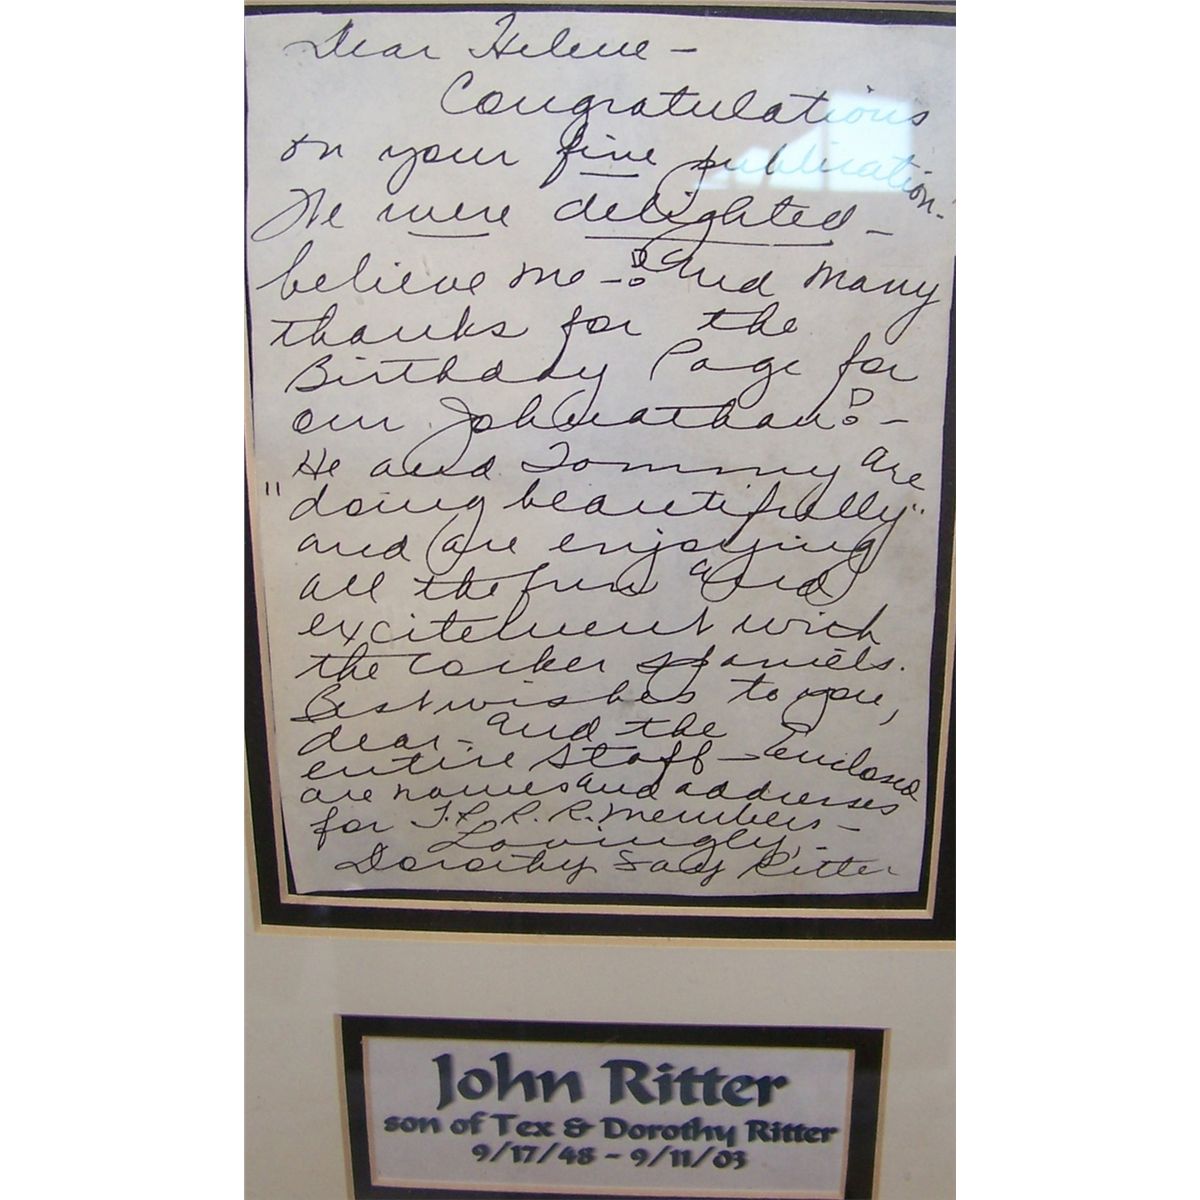 Dear Helene –
Congratulations
on your fine publication –
We were delighted –
believe me –! and many
thanks for the
Birthday Page for
our Johnathan! –
He and Tommy are
"doing beautifully"
and are enjoying
all the fun and
excitement with
the Cocker Spaniels.
Best wishes to you,
dear – and the
entire staff – Enclosed
are names and addresses
for T. R. R. R. members –
Lovingly, –
Dorothy Fay Ritter
John Ritter
son of Tex & Dorothy Ritter
9/17/48 - 9/11/03